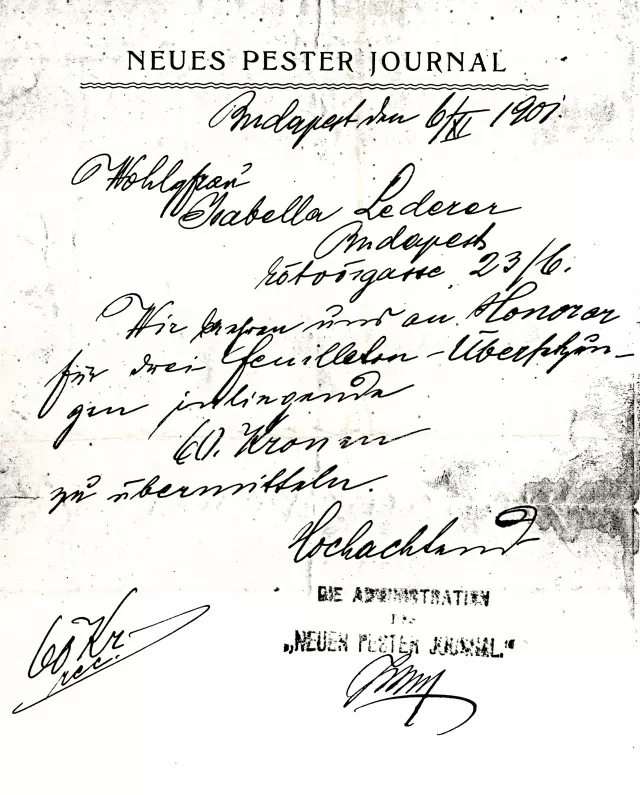 NEUES PESTER JOURNAL
Budapest den 6/XI 1901.
Wohlgfrau
Isabella Lederer
Budapest
Rótvösgasse 23/6.
Wir beehren uns an Honorar
für drei Feuilleton-Übersetzun-
gen inliegende
60. Kronen
zu übermitteln.
Hochachtend
DIE ADMINISTRATION
DES
„NEUEN PESTER JOURNAL."
60 Kr
rec.